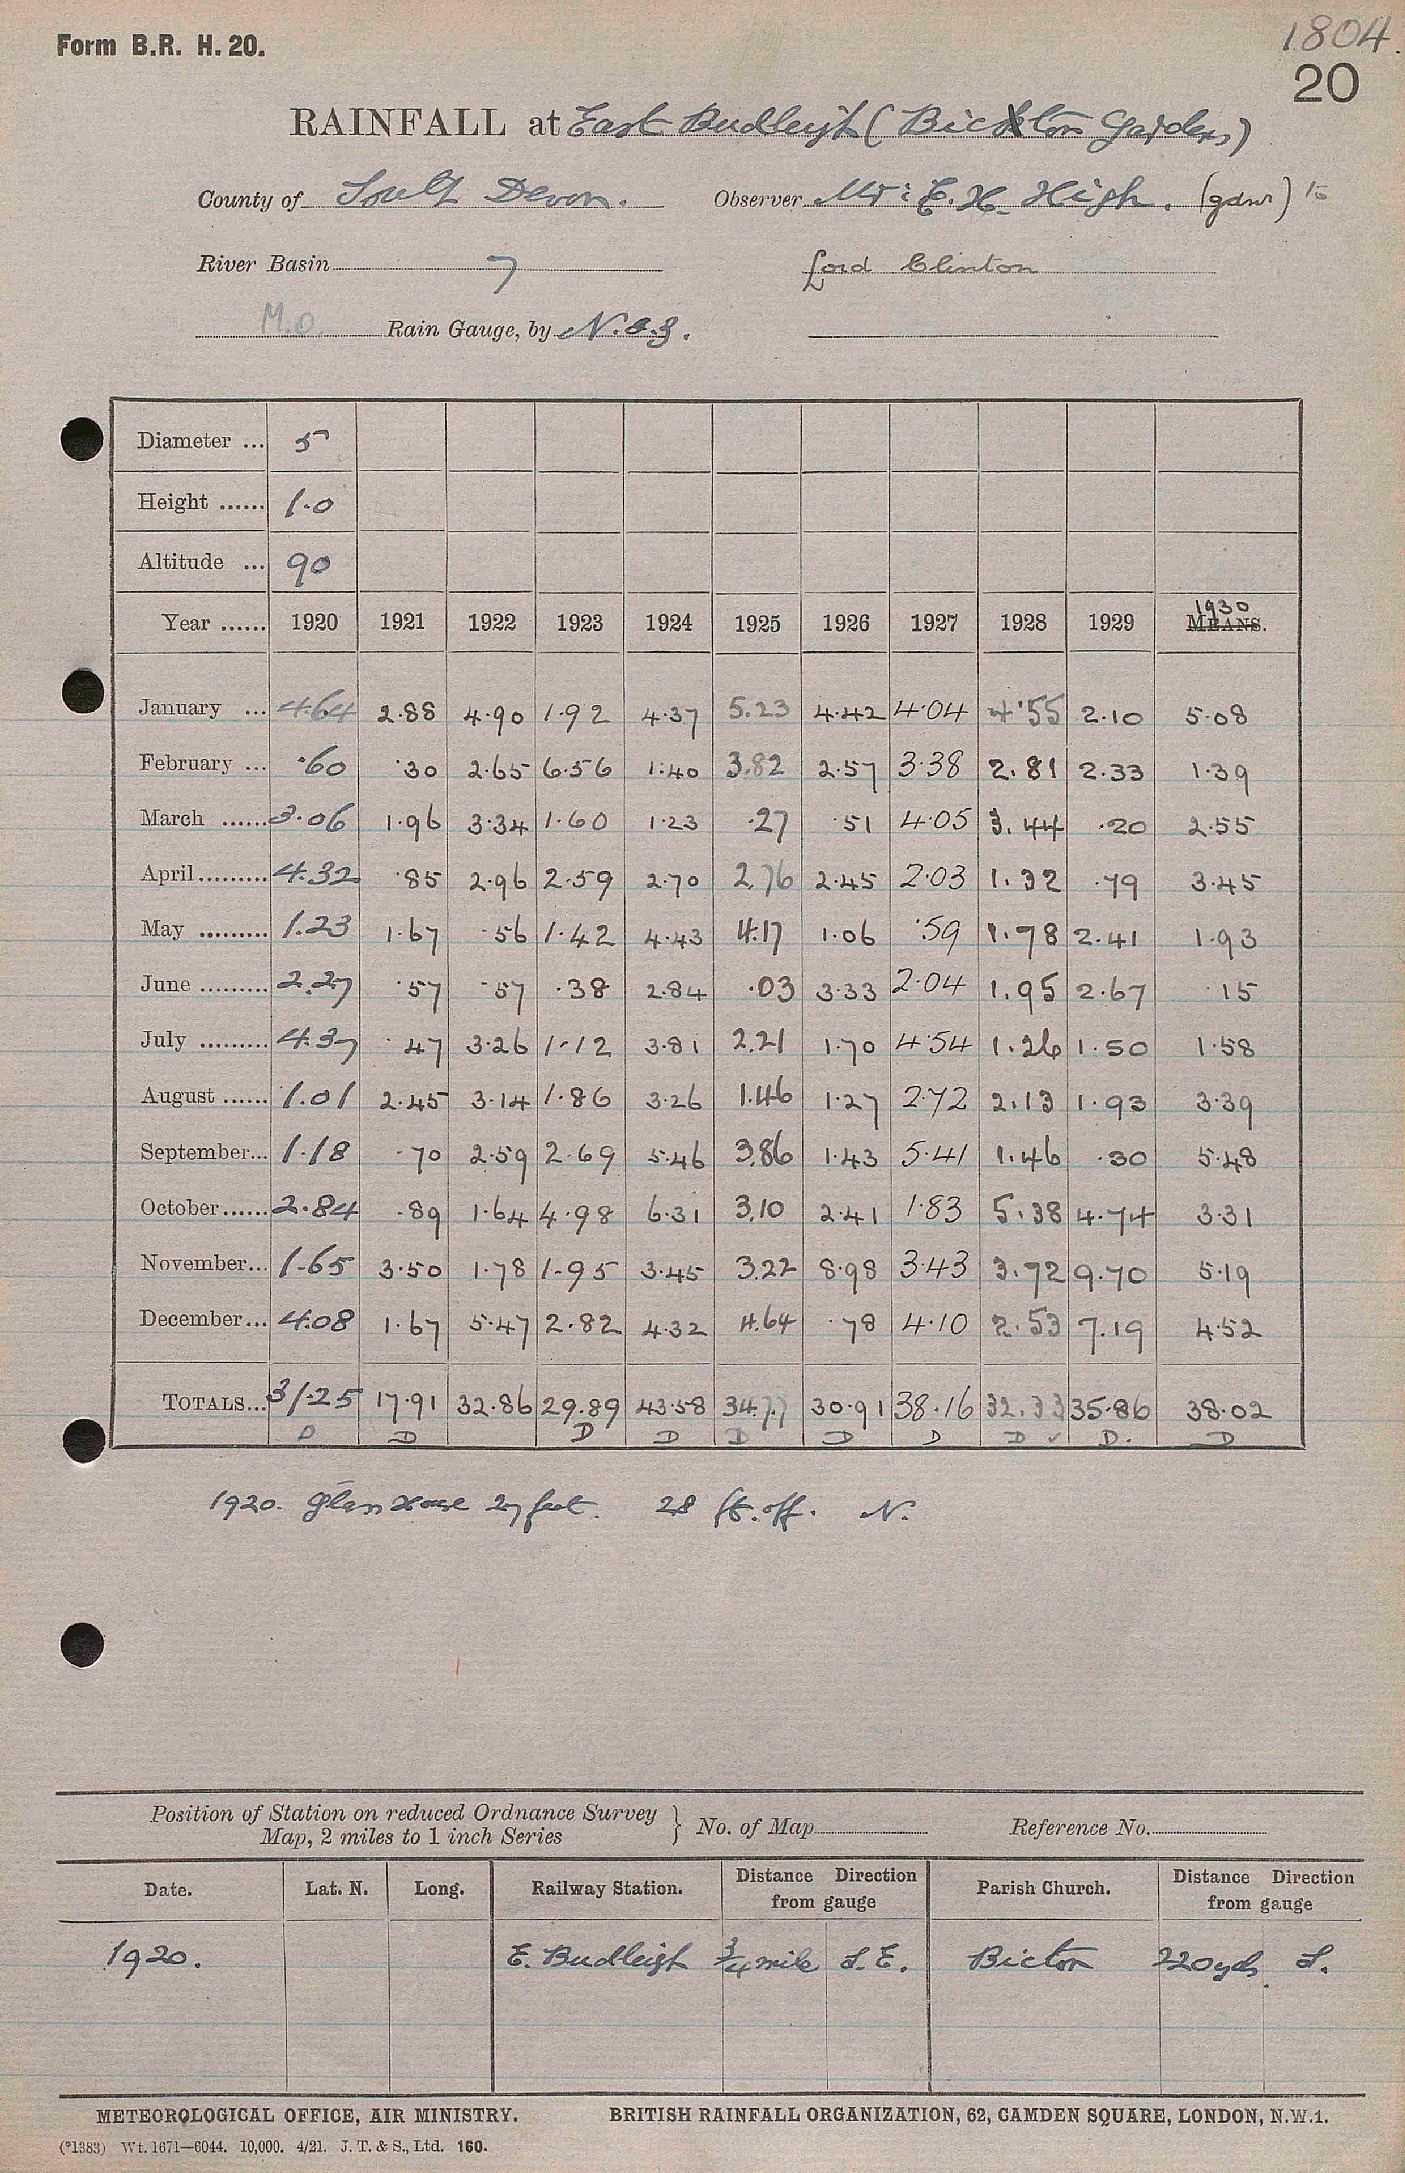 Form B.R. H. 20.
1804.
20
RAINFALL at East Budleigh (Bickton Gardens)
County of South Devon. Observer Mr: E. H. High. (gdnr) to
River Basin 7 Lord Clinton
M.O. Rain Gauge, by N. & Z.
Diameter ... 5
Height ...... 1.0
Altitude ... 90
Year ...... 1920 1921 1922 1923 1924 1925 1926 1927 1928 1929 1930 MEANS.
January ... 4.64 2.88 4.90 1.92 4.37 5.23 4.42 4.04 4.55 2.10 5.08
February ... .60 .30 2.65 6.56 1.40 3.82 2.57 3.38 2.81 2.33 1.39
March ...... 3.06 1.96 3.34 1.60 1.23 .27 .51 4.05 3.44 .20 2.55
April ......... 4.32 .85 2.96 2.59 2.70 2.76 2.45 2.03 1.32 .79 3.45
May ......... 1.23 1.67 .56 1.42 4.43 4.17 1.06 .59 1.78 2.41 1.93
June ......... 2.27 .57 .57 .38 2.84 .03 3.33 2.04 1.95 2.67 .15
July ......... 4.37 .47 3.26 1.12 3.81 2.21 1.70 4.54 1.26 1.50 1.58
August ...... 1.01 2.45 3.14 1.86 3.26 1.46 1.27 2.72 2.13 1.93 3.39
September... 1.18 .70 2.59 2.69 5.46 3.86 1.43 5.41 1.46 .30 5.48
October...... 2.84 .89 1.64 4.98 6.31 3.10 2.41 1.83 5.38 4.74 3.31
November... 1.65 3.50 1.78 1.95 3.45 3.22 8.98 3.43 3.72 9.70 5.19
December... 4.08 1.67 5.47 2.82 4.32 4.64 .78 4.10 2.53 7.19 4.52
TOTALS... 31.25 17.91 32.86 29.89 43.58 34.77 30.91 38.16 32.33 35.86 38.02
D D D D D D D D ✓ D. D
1920. Glass House 27 feet. 28 ft. off. N.
Position of Station on reduced Ordnance Survey
Map, 2 miles to 1 inch Series } No. of Map Reference No.
Date. Lat. N. Long. Railway Station. Distance Direction from gauge Parish Church. Distance Direction from gauge
1920. E. Budleigh 3/4 mile S.E. Bicton 220 yds. S.
METEOROLOGICAL OFFICE, AIR MINISTRY. BRITISH RAINFALL ORGANIZATION, 62, CAMDEN SQUARE, LONDON, N.W.1.
(*1383) Wt. 1671—6044. 10,000. 4/21. J. T. & S., Ltd. 160.